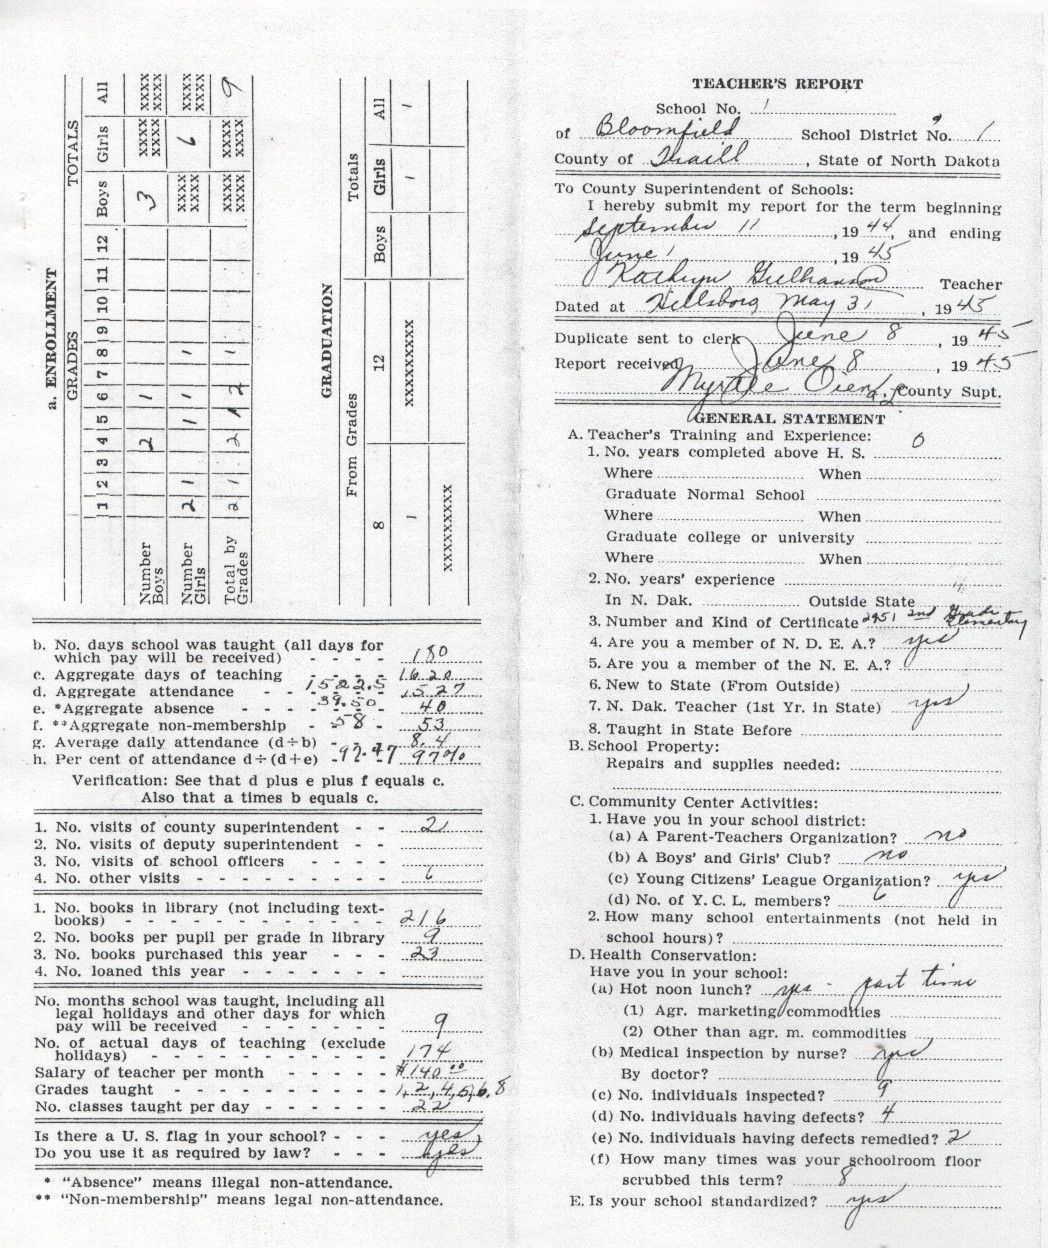 a. ENROLLMENT
GRADES TOTALS
1 2 3 4 5 6 7 8 9 10 11 12 Boys Girls All
Number Boys 2 1 3 XXXX XXXX XXXX XXXX
Number Girls 2 1 1 1 1 XXXX XXXX 6 XXXX XXXX
Total by Grades 2 1 2 1 2 1 XXXX XXXX XXXX XXXX 9
GRADUATION
From Grades Totals
8 12 Boys Girls All
1 XXXXXXXXX 1 1
XXXXXXXXX
b. No. days school was taught (all days for
which pay will be received) - - - - 180
c. Aggregate days of teaching - - - - 1620
d. Aggregate attendance - - - - - 1522.5 1527
e. *Aggregate absence - - - - - 39.50 40
f. **Aggregate non-membership - - 58 - 53
g. Average daily attendance (d÷b) - - 8.4
h. Per cent of attendance d÷(d+e) - 97.47 97%
Verification: See that d plus e plus f equals c.
Also that a times b equals c.
1. No. visits of county superintendent - - 2
2. No. visits of deputy superintendent - -
3. No. visits of school officers - - - -
4. No. other visits - - - - - - - - - 6
1. No. books in library (not including text-
books) - - - - - - - - - - - - 216
2. No. books per pupil per grade in library 9
3. No. books purchased this year - - - 23
4. No. loaned this year - - - - - - -
No. months school was taught, including all
legal holidays and other days for which
pay will be received - - - - - - - 9
No. of actual days of teaching (exclude
holidays) - - - - - - - - - - - 174
Salary of teacher per month - - - - - $140.00
Grades taught - - - - - - - - - - 1, 2, 4, 5, 6, 8
No. classes taught per day - - - - - - 22
Is there a U. S. flag in your school? - - - yes
Do you use it as required by law? - - - yes
* "Absence" means illegal non-attendance.
** "Non-membership" means legal non-attendance.
TEACHER'S REPORT
School No. 1
of Bloomfield School District No. 1
County of Traill, State of North Dakota
To County Superintendent of Schools:
I hereby submit my report for the term beginning
September 11, 1944, and ending
June 1, 1945
Kathryn Teacher
Dated at Hillsboro, May 31, 1945
Duplicate sent to clerk June 8, 1945
Report received June 8, 1945
Myrtle County Supt.
GENERAL STATEMENT
A. Teacher's Training and Experience:
1. No. years completed above H. S. 0
Where When
Graduate Normal School
Where When
Graduate college or university
Where When
2. No. years' experience
In N. Dak. Outside State
3. Number and Kind of Certificate 2951 2nd Grade Elementary
4. Are you a member of N. D. E. A.? yes
5. Are you a member of the N. E. A.?
6. New to State (From Outside)
7. N. Dak. Teacher (1st Yr. in State) yes
8. Taught in State Before
B. School Property:
Repairs and supplies needed:
C. Community Center Activities:
1. Have you in your school district:
(a) A Parent-Teachers Organization? no
(b) A Boys' and Girls' Club? no
(c) Young Citizens' League Organization? yes
(d) No. of Y. C. L. members? 6
2. How many school entertainments (not held in
school hours)?
D. Health Conservation:
Have you in your school:
(a) Hot noon lunch? yes - part time
(1) Agr. marketing commodities
(2) Other than agr. m. commodities
(b) Medical inspection by nurse? yes
By doctor?
(c) No. individuals inspected? 9
(d) No. individuals having defects? 4
(e) No. individuals having defects remedied? 2
(f) How many times was your schoolroom floor
scrubbed this term? 8
E. Is your school standardized? yes